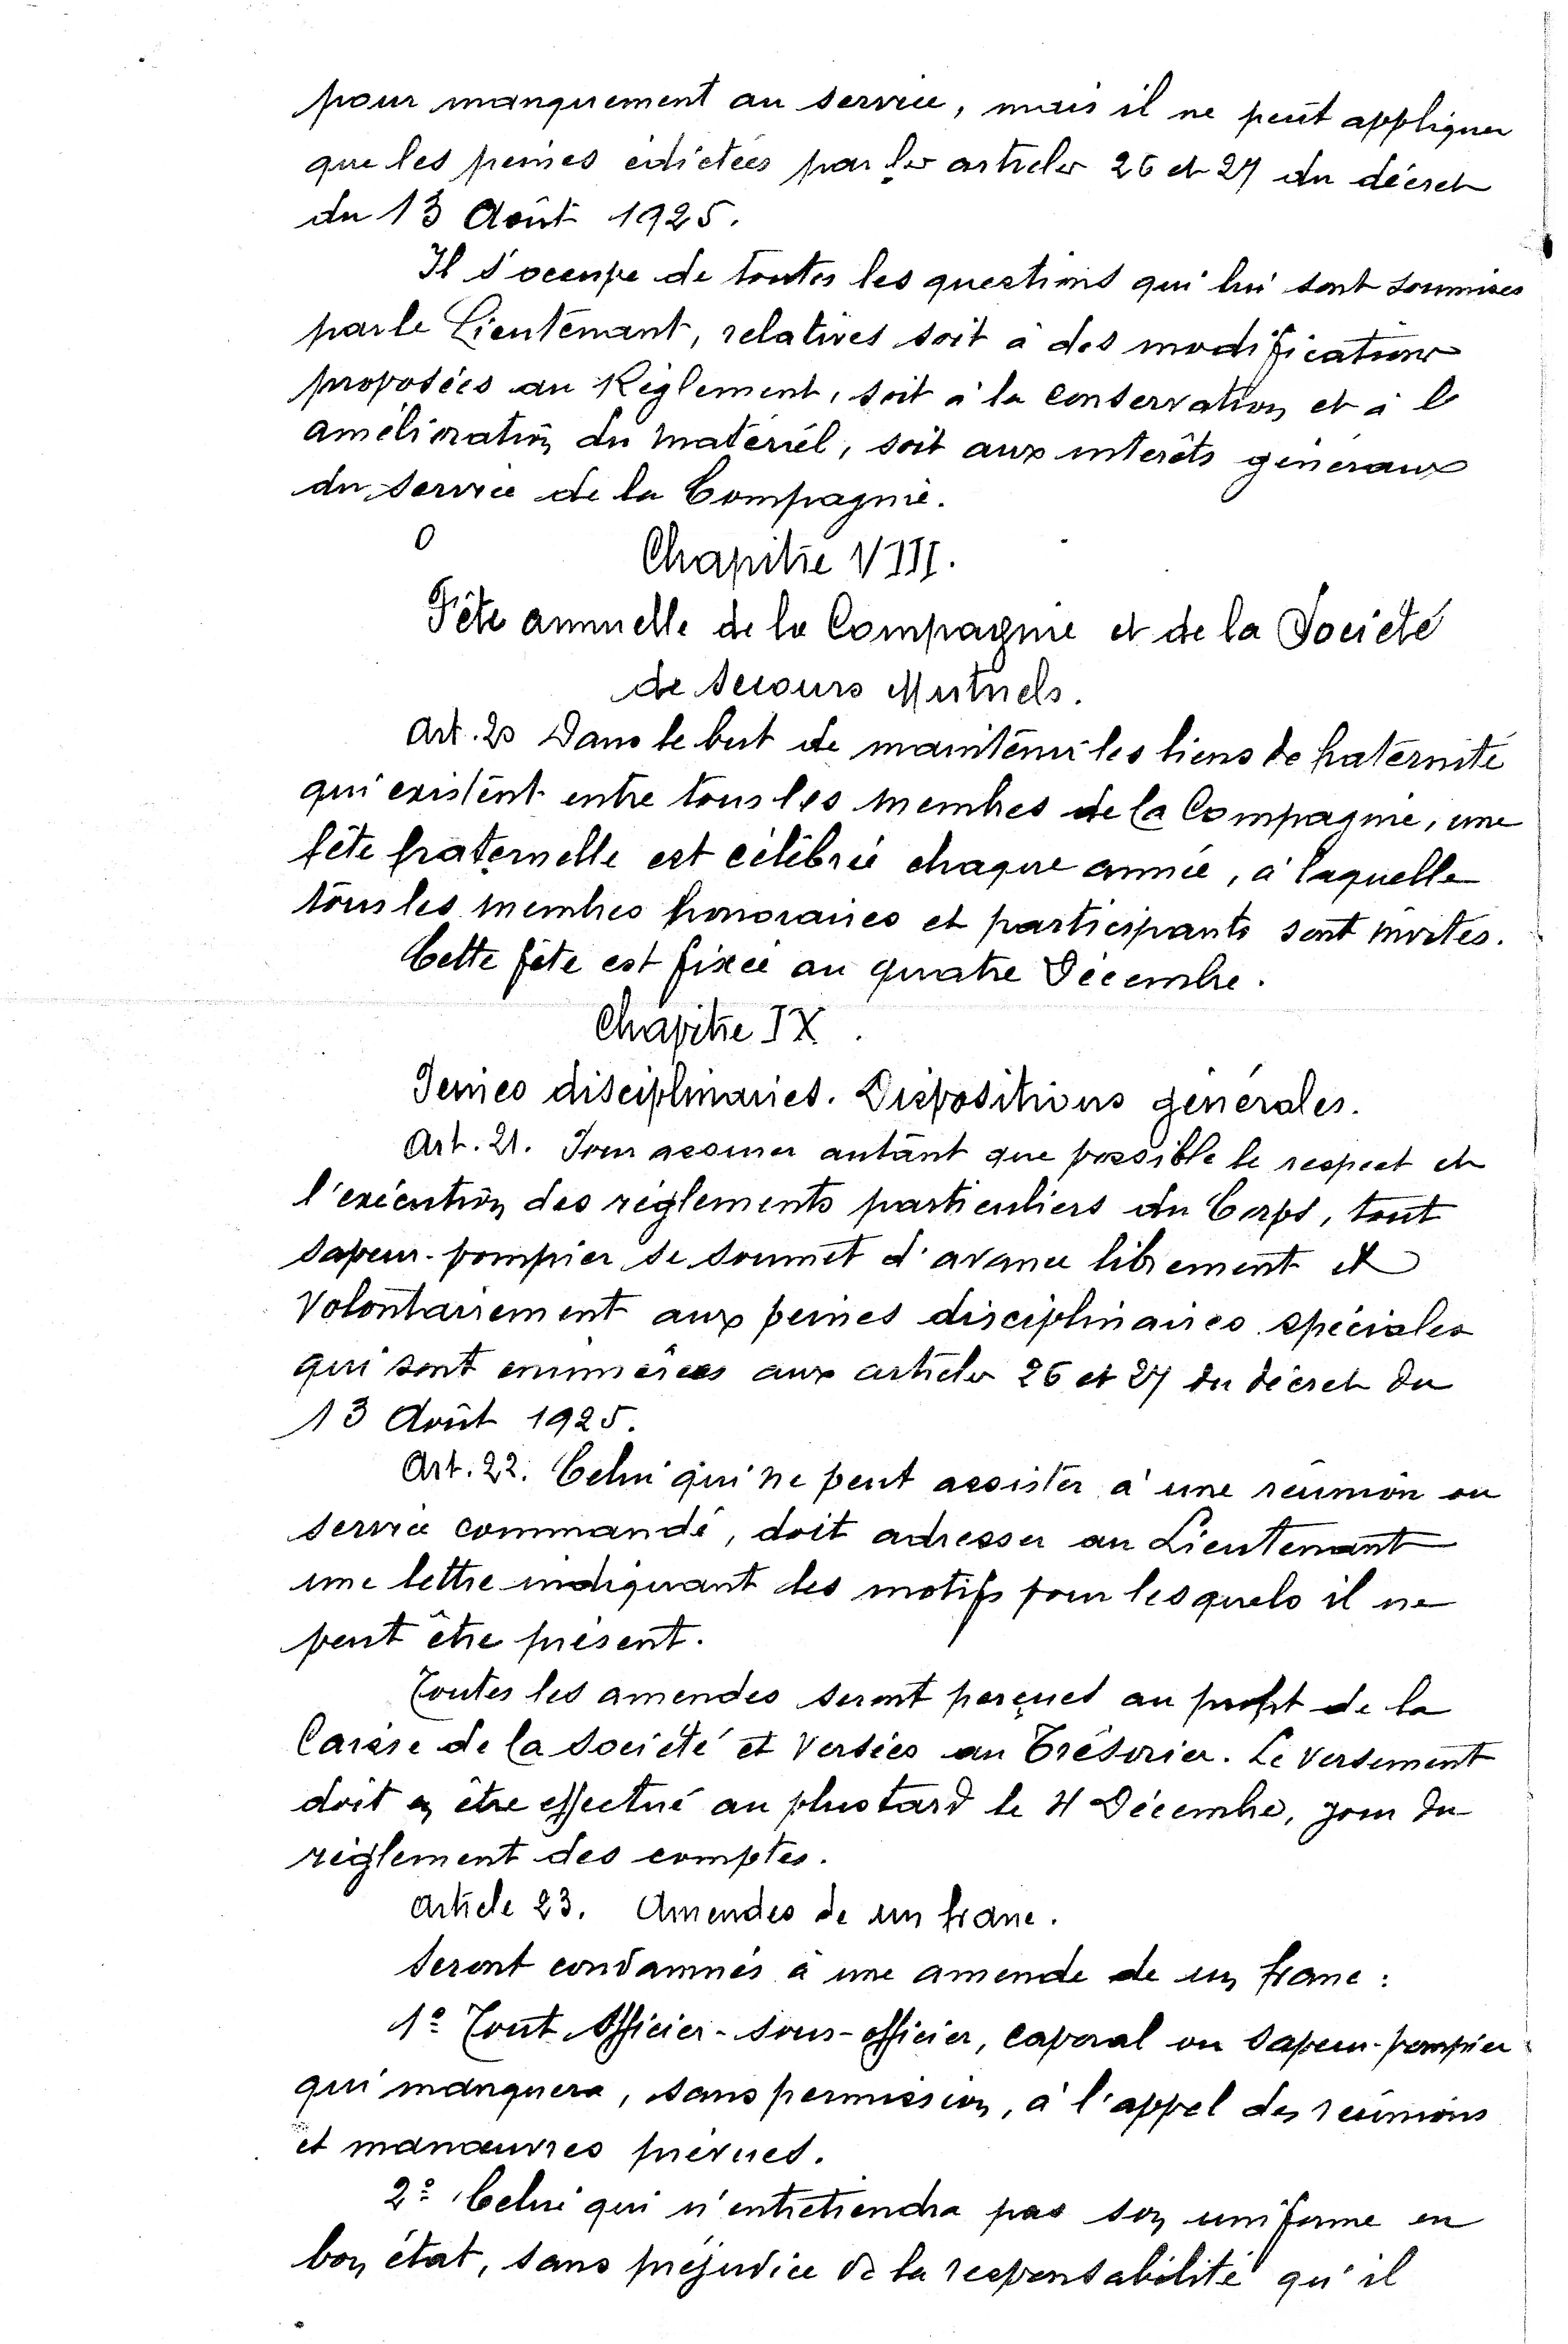 pour manquement au service, mais il ne peut appliquer
que les peines édictées par les articles 26 et 27 du décret
du 13 Août 1925.
Il s'occupe de toutes les questions qui lui sont soumises
par le Lieutenant, relatives soit à des modifications
proposées au Règlement, soit à la conservation et à l
amélioration du matériel, soit aux intérêts généraux
du service de la Compagnie.
Chapitre VIII.
Fête annuelle de la Compagnie et de la Société
de Secours Mutuels.
Art. 20 Dans le but de maintenir les liens de fraternité
qui existent entre tous les membres de la Compagnie, une
fête fraternelle est célébrée chaque année, à laquelle
tous les membres honoraires et participants sont invités.
Cette fête est fixée au quatre Décembre.
Chapitre IX.
Peines disciplinaires. Dispositions générales.
Art. 21. Pour assurer autant que possible le respect et
l'exécution des règlements particuliers du Corps, tout
sapeur-pompier se soumet d'avance librement et
volontairement aux peines disciplinaires spéciales
qui sont énumérées aux articles 26 et 27 du décret du
13 Août 1925.
Art. 22. Celui qui ne peut assister à une réunion ou
service commandé, doit adresser au Lieutenant
une lettre indiquant les motifs pour lesquels il ne
peut être présent.
Toutes les amendes seront perçues au profit de la
Caisse de la Société et versées au Trésorier. Le versement
doit en être effectué au plus tard le 4 Décembre, jour du
règlement des comptes.
Article 23. Amendes de un franc.
Seront condamnés à une amende de un franc :
1º Tout Officier-sous-officier, caporal ou sapeur-pompier
qui manquera, sans permission, à l'appel des réunions
et manœuvres prévues.
2º Celui qui n'entretiendra pas son uniforme en
bon état, sans préjudice de la responsabilité qu'il